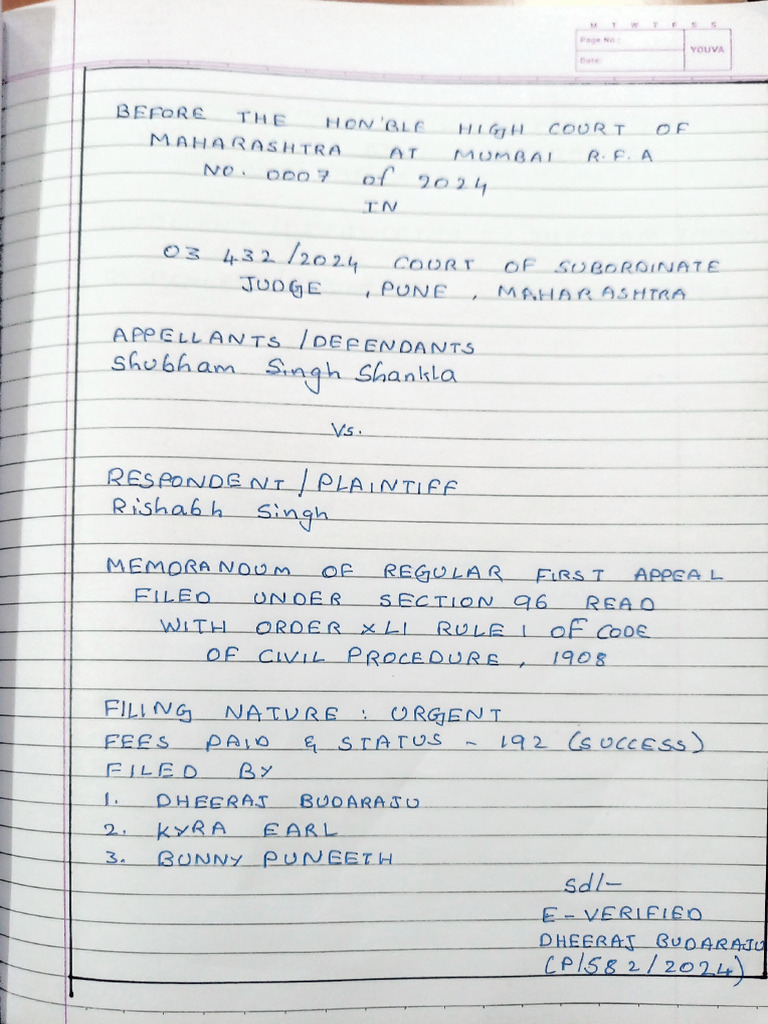 M T W T F S S
Page No.:
YOUVA
Date:
BEFORE THE HON'BLE HIGH COURT OF
MAHARASHTRA AT MUMBAI R.F.A
NO. 0007 of 2024
IN
03 432/2024 COURT OF SUBORDINATE
JUDGE , PUNE , MAHARASHTRA
APPELLANTS / DEFENDANTS
Shubham Singh Shankla
Vs.
RESPONDENT / PLAINTIFF
Rishabh Singh
MEMORANDUM OF REGULAR FIRST APPEAL
FILED UNDER SECTION 96 READ
WITH ORDER XLI RULE 1 OF CODE
OF CIVIL PROCEDURE , 1908
FILING NATURE : URGENT
FEES PAID & STATUS - 192 (SUCCESS)
FILED BY
1. DHEERAJ BUDARAJU
2. KYRA EARL
3. BUNNY PUNEETH
Sd/-
E-VERIFIED
DHEERAJ BUDARAJU
(P/582/2024)